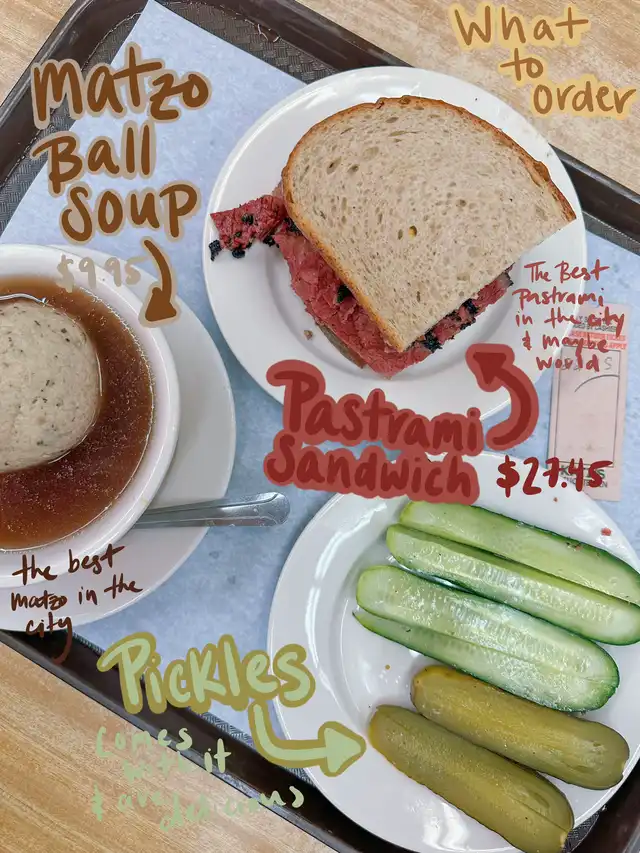 What
to
order
Matzo
Ball
Soup
$9.95
The Best
Pastrami
in the city
& maybe
world
Pastrami
Sandwich
$27.45
the best
matzo in the
city
Pickles
comes
with it
& are